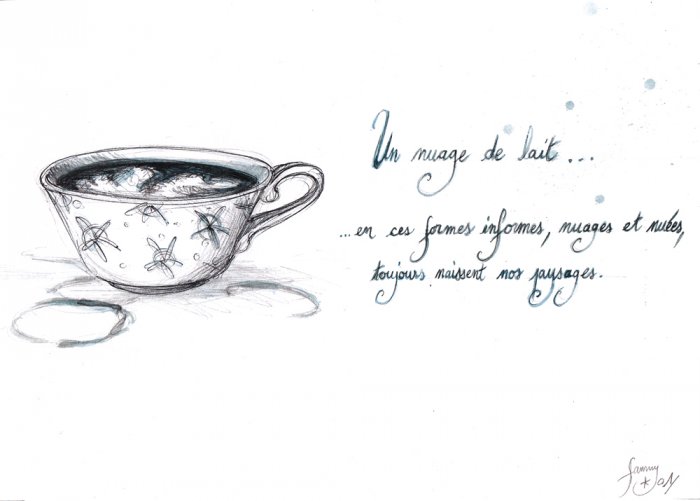 Un nuage de lait...
...en ces formes informes, nuages et nuées,
toujours naissent nos paysages.
fanny